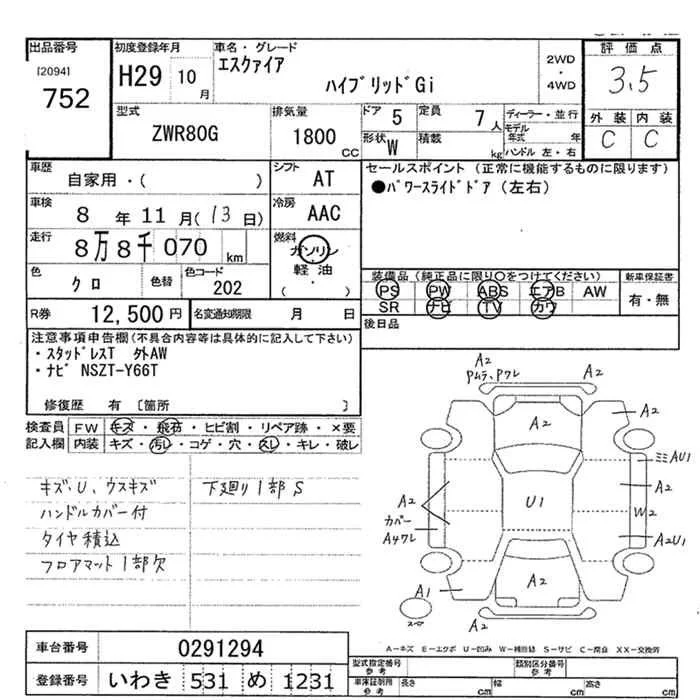 出品番号
[2094]
752
初度登録年月
H29 10月
車名・グレード
エスクァイア
ハイブリッドGi
2WD
・
4WD
評価点
3.5
外装 内装
C C
型式
ZWR80G
排気量
1800 CC
ドア 5
定員 7人
形状 W
積載 kg
ディーラー・並行
モデル年式 年
ハンドル 左・右
車歴
自家用・( )
シフト AT
車検
8年11月(13日)
冷房 AAC
走行
8万8千070km
燃料
ガソリン
軽油
・( )
色
クロ
色替
色コード
202
セールスポイント(正常に機能するものに限ります)
●パワースライドドア(左右)
装備品(純正品に限り○をつけてください)
PS PW ABS エアB AW
SR ナビ TV カワ
新車保証書
有・無
R券 12,500円
名変通知期限 月 日
後日品
注意事項申告欄(不具合内容等は具体的に記入して下さい)
・スタッドレスT 外AW
・ナビ NSZT-Y66T
修復歴 有 [箇所 ]
検査員記入欄
FW キズ・飛石・ヒビ割・リペア跡・×要
内装 キズ・汚レ・コゲ・穴・スレ・キレ・破レ
キズ、U、ウスキズ
ハンドルカバー付
タイヤ積込
フロアマット1部欠
下廻り1部S
A2
Pムラ、Pワレ
A2
A2
ミミAU1
A2
A2
U1
W2
カバー
A4ワレ
A2U1
A2
A1
A2
スペア
A-キズ E-エクボ U-凹み W-補修跡 S-サビ C-腐食 XX-交換済
車台番号 0291294
登録番号 いわき 531 め 1231
型式指定番号
参考
類別区分番号
参考
車庫証明用
参考
長さ cm 幅 cm 高さ cm